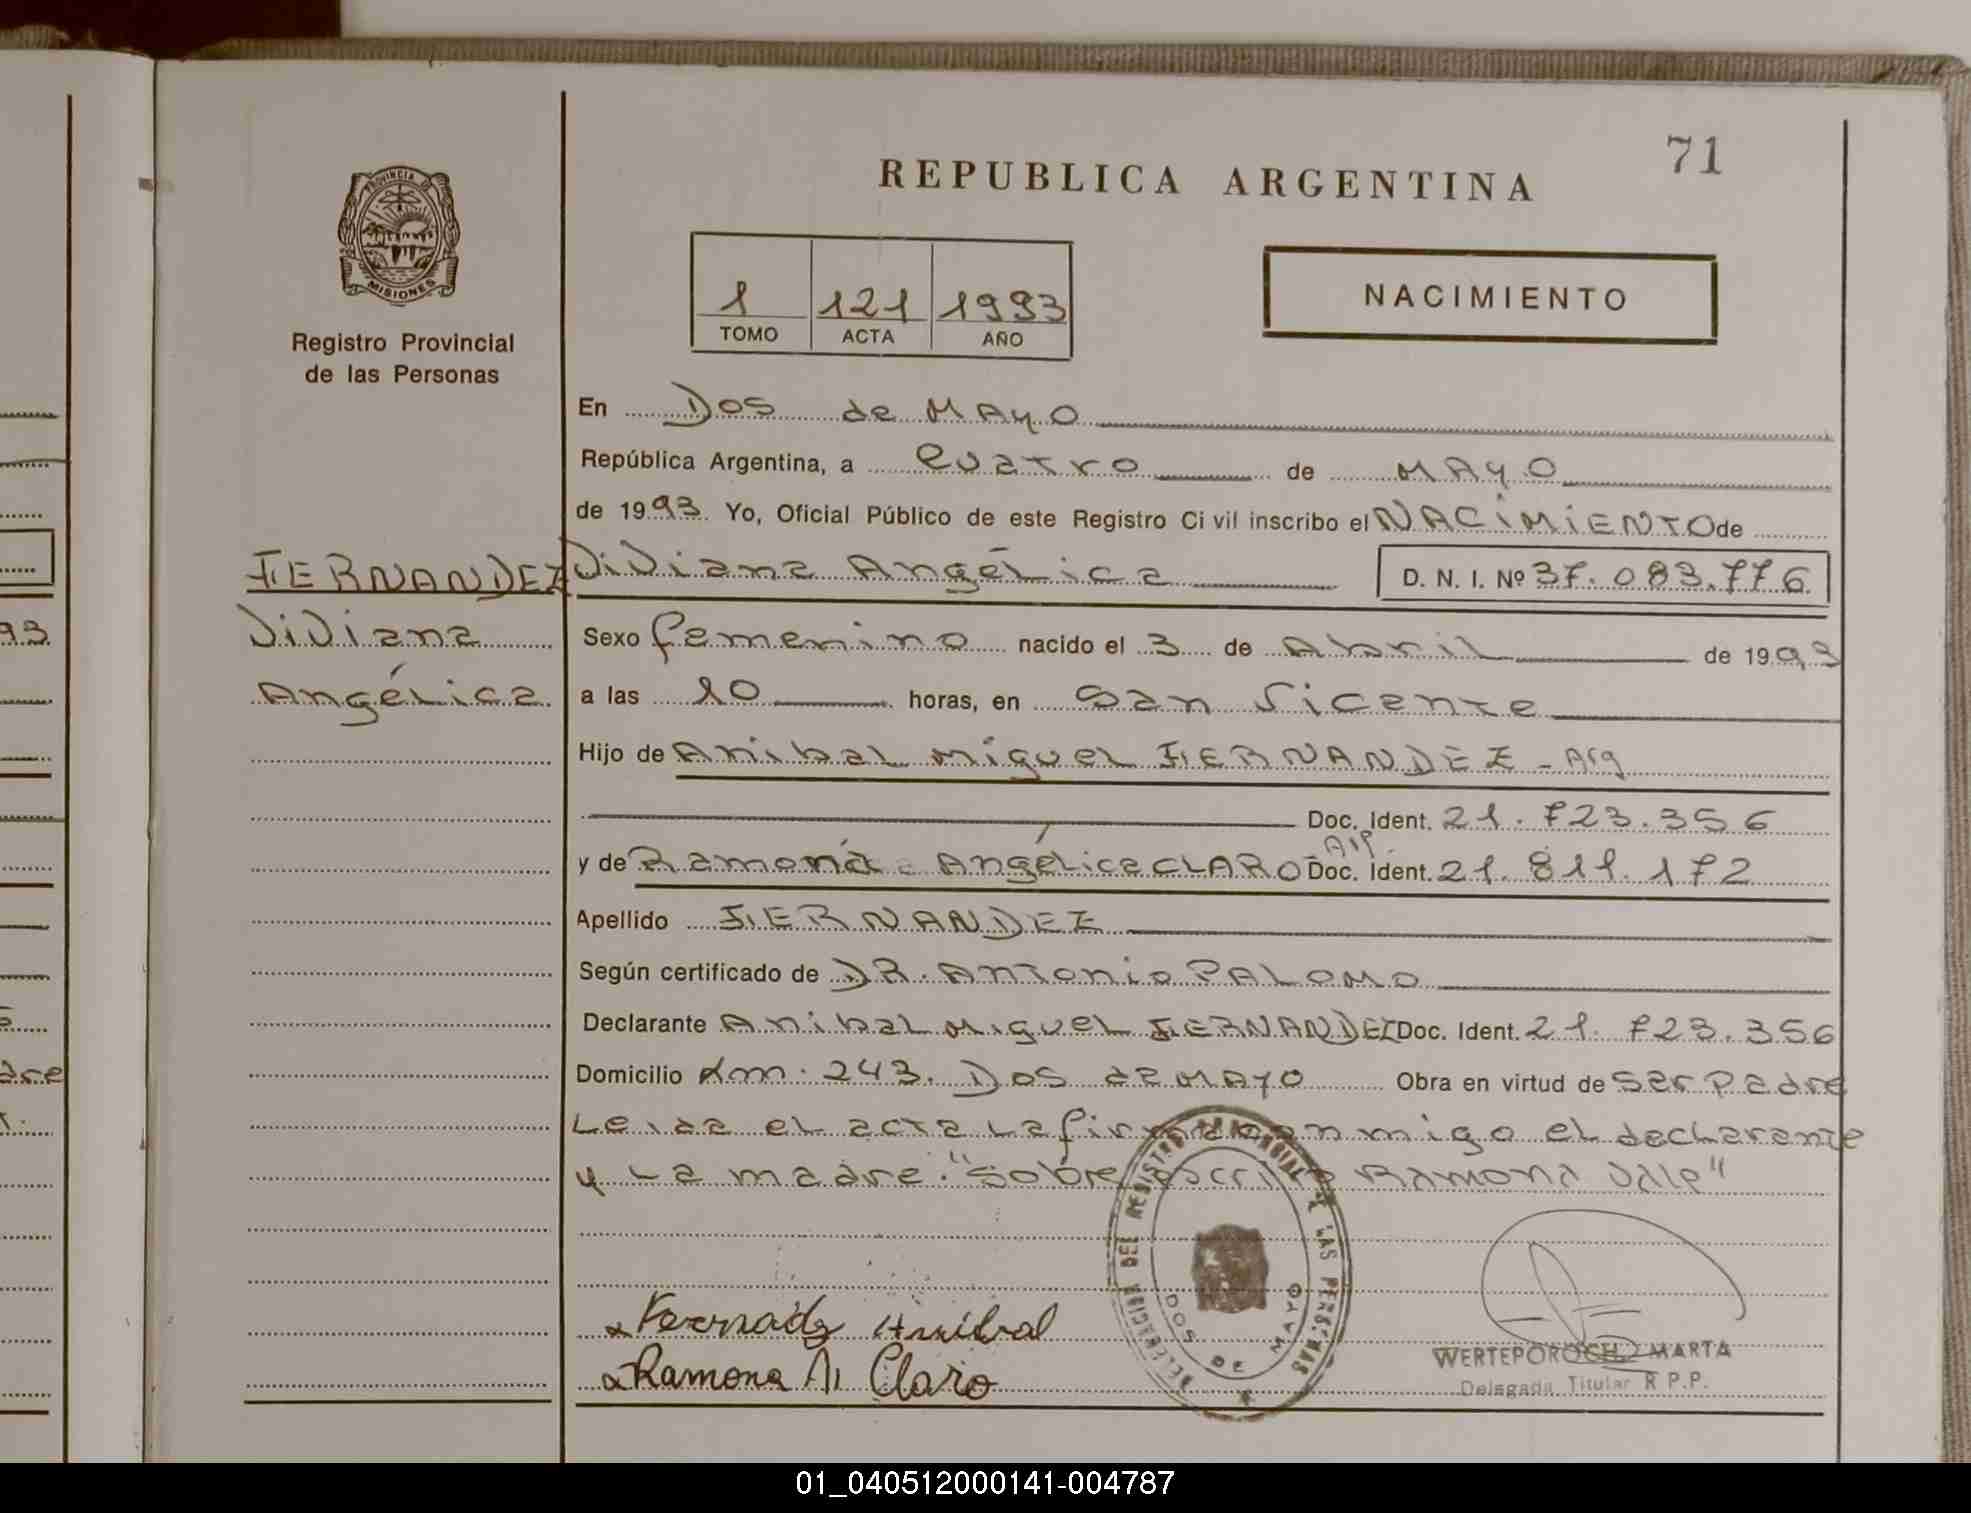 71
REPUBLICA ARGENTINA
PROVINCIA DE
MISIONES
Registro Provincial
de las Personas
1 121 1993
TOMO ACTA AÑO
NACIMIENTO
En Dos de MAyO
República Argentina, a Cuatro de MAyO
de 1993. Yo, Oficial Público de este Registro Civil inscribo el NACIMIENTO de
FERNANDEZ
ViViana
Angélica
ViViana Angélica D. N. I. Nº 37.083.776
Sexo femenino nacido el 3 de Abril de 1993
a las 10 horas, en San Vicente
Hijo de Anibal Miguel FERNANDEZ - Arg
Doc. Ident. 21.723.356
y de Ramona Angélica CLARO - Arg. Doc. Ident. 21.811.172
Apellido FERNANDEZ
Según certificado de DR. Antonio PALOMO
Declarante Anibal Miguel FERNANDEZ Doc. Ident. 21.723.356
Domicilio Km. 243. Dos de MAyO Obra en virtud de ser padre
Leida el acta la firma conmigo el declarante
y la madre. "Sobre escrito Ramona Vale"
Fernadz Anibal
Ramona A Claro
DELEGACION DEL REGISTRO PROVINCIAL DE LAS PERSONAS
DOS DE MAYO
WERTEPOROCH, MARTA
Delegada Titular R.P.P.
93
adre
01_040512000141-004787